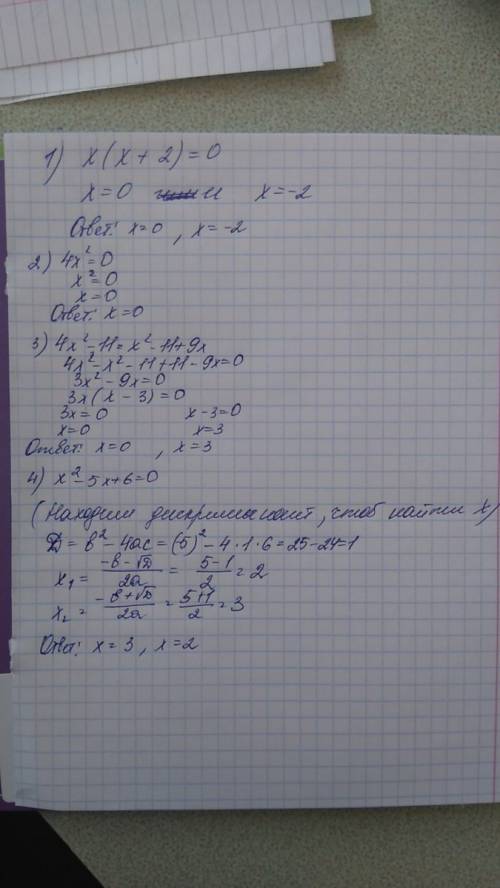 1) x(x+2)=0
x=0 и x=-2
Ответ: x=0, x=-2
2) 4x²=0
x²=0
x=0
Ответ: x=0
3) 4x²-11=x²-11+9x
4x²-x²-11+11-9x=0
3x²-9x=0
3x(x-3)=0
3x=0 x-3=0
x=0 x=3
Ответ: x=0, x=3
4) x²-5x+6=0
(Находим дискриминант, чтоб найти x)
D=b²-4ac=(5)²-4·1·6=25-24=1
x₁=(-b-√D)/2a=(5-1)/2=2
x₂=(-b+√D)/2a=(5+1)/2=3
Ответ: x=3, x=2